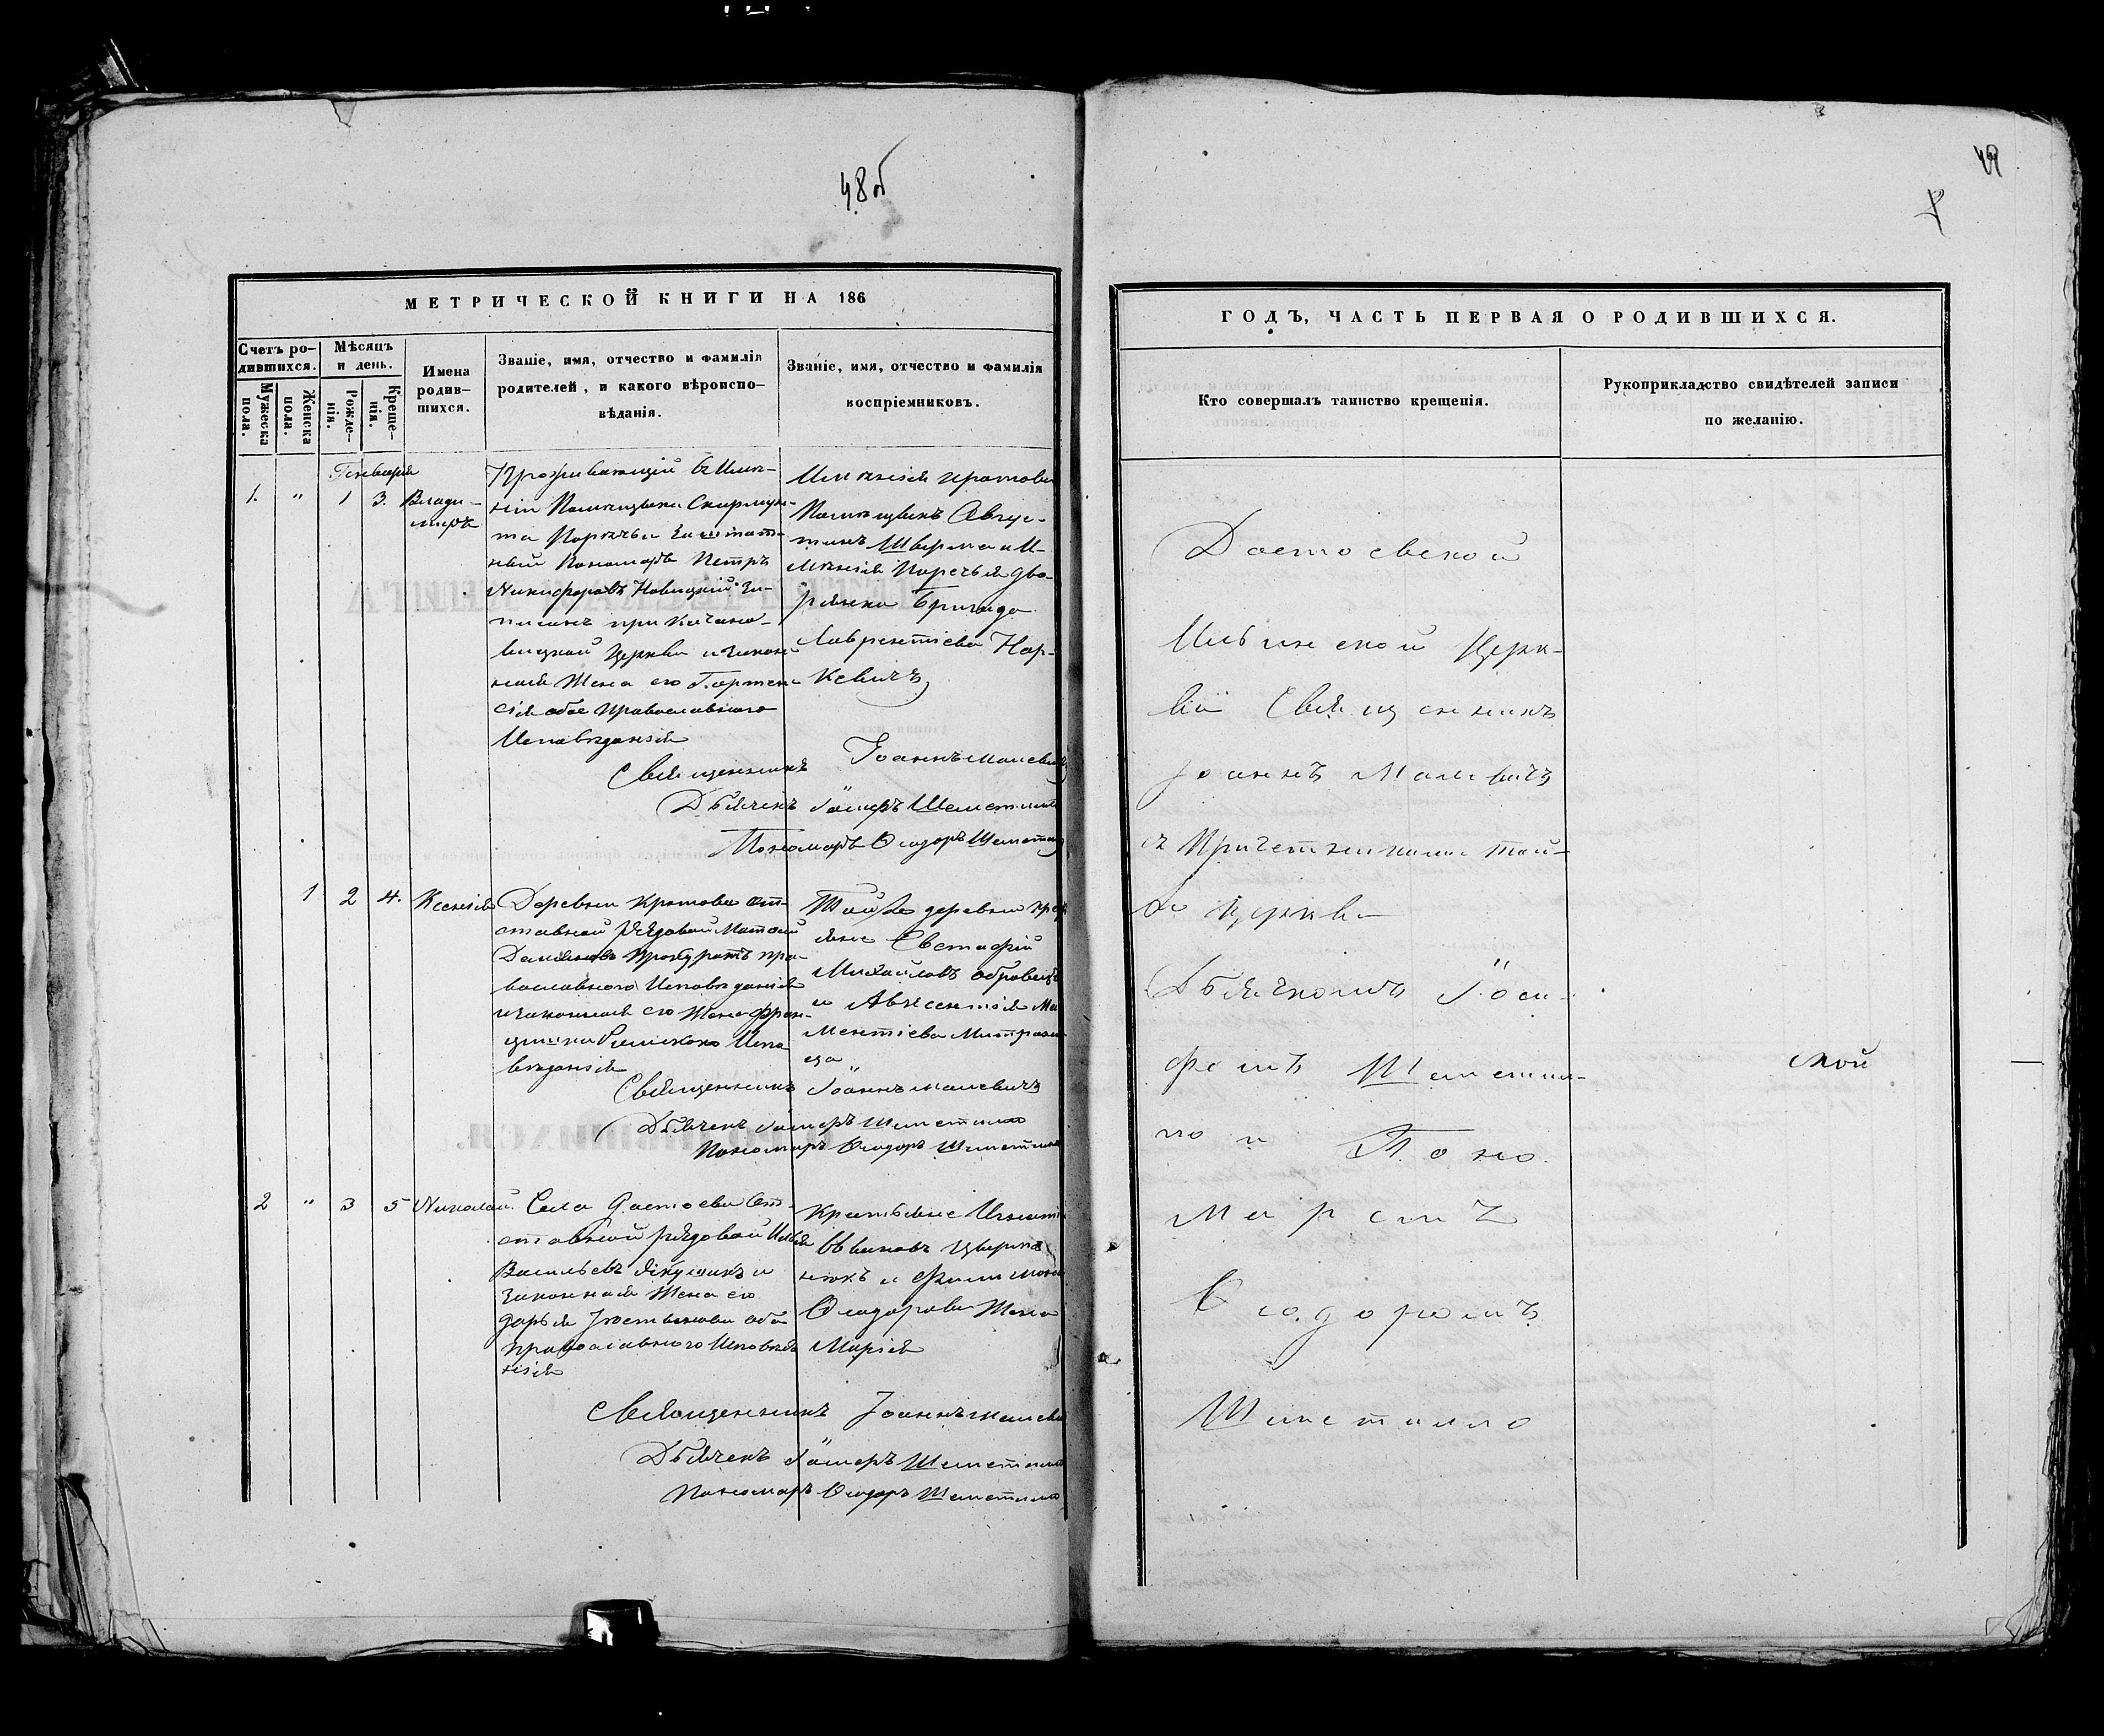 48 об
49
МЕТРИЧЕСКОЙ КНИГИ НА 186
Счетъ ро-
дившихся.
Мужеска
пола.
Женска
пола.
Мѣсяцъ
и день.
Рожде-
нія.
Креще-
нія.
Имена
родив-
шихся.
Званіе, имя, отчество и фамилія
родителей, и какого вѣроиспо-
вѣданія.
Званіе, имя, отчество и фамилія
воспріемниковъ.
Генваря
1. " 1 3. Влади-
миръ
Проживающій въ Имѣ-
ніи Помѣщика Скирмун-
та Порѣчьи Заштат-
ный Пономарь Петръ
Никифоровъ Новицкій за-
писанъ при
вицкой Церкви и закон-
ная Жена его Гортен-
сія обое Православнаго
Исповѣданія
Имѣнія Кротова
Помѣщикъ Авгус-
тинъ Шверма и И-
мѣнія Поречья дво-
рянка Бригида
Лаврентіева Нар-
кевичъ
Священникъ Іоаннъ Малевичъ
Дьячекъ Шеметилло
Пономарь Ѳеодоръ Шеметилло
1 2 4. Ксенія
Деревни Кротова от-
ставной рядовой Матвей
Демьяновъ пра-
вославнаго Исповѣданія
и законная его Жена Фран-
цишка Римскаго Испо-
вѣданія
Той же деревни кре
яне Евстафій
Михайловъ
и Авксентія
ментіева
Священникъ Іоаннъ Малевичъ
Дьячекъ Шеметилло
Пономарь Ѳеодоръ Шеметилло
2 " 3 5 Николай.
Села Достоева От-
ставной рядовой Илья
Васильевъ Якушикъ и
законная Жена его
Дарья Устинова обое
православнаго Исповѣда
нія
Крестьяне Игнатій
нюкъ и Филимона
Ѳеодорова Жена
Марія
Священникъ Іоаннъ Малевичъ
Дьячекъ Шеметилло
Пономарь Ѳеодоръ Шеметилло
ГОДЪ, ЧАСТЬ ПЕРВАЯ О РОДИВШИХСЯ.
Кто совершалъ таинство крещенія.
Рукоприкладство свидѣтелей записи
по желанію.
Достоевской
Ильинской Церк-
ви Священникъ
Іоаннъ Малевичъ
съ Причетниками той-
же Церкви
Дьячкомъ Іоси-
фомъ Шеметил-
ло и Поно
маремъ
Ѳеодоромъ
Шеметилло
ской